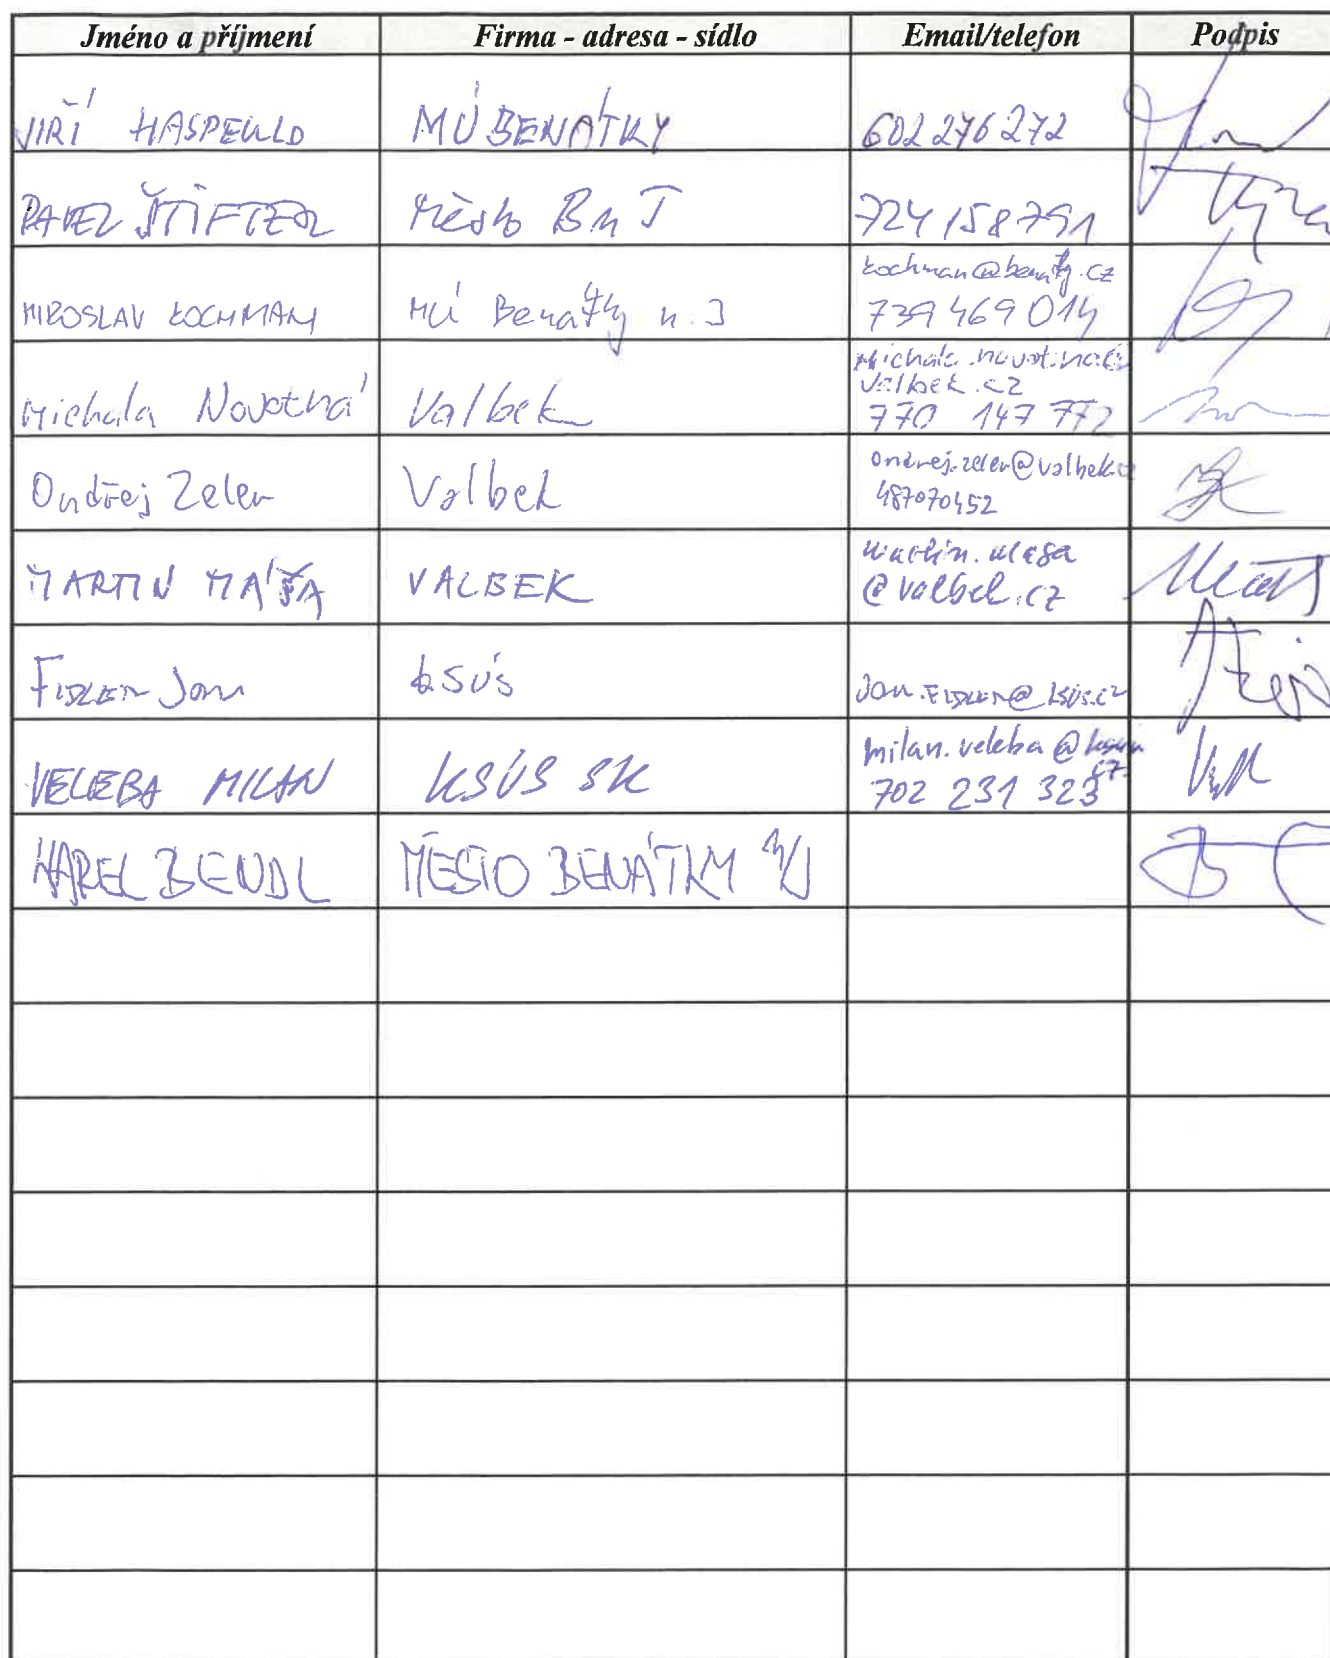 Jméno a příjmení Firma - adresa - sídlo Email/telefon Podpis
JIŘÍ HASPEKLO MÚ BENÁTKY 602 276 272
PAVEL ŠTIFTER Město BnJ 724 158 791
MIROSLAV KOCHMAN MÚ Benátky n. J kochman@benatky.cz
739 469 014
Michala Novotná Valbek michala.novotna@
valbek.cz
770 147 772
Ondřej Zeler Valbek ondrej.zeler@valbek.cz
487070452
MARTIN MÁŠA VALBEK martin.masa
@valbek.cz
FIDLER Jan KSÚS Jan.FIDLER@ksus.cz
VELEBA MILAN KSÚS SK milan.veleba@ksus.
cz
702 231 323
KAREL BENDL MĚSTO BENÁTKY n/J